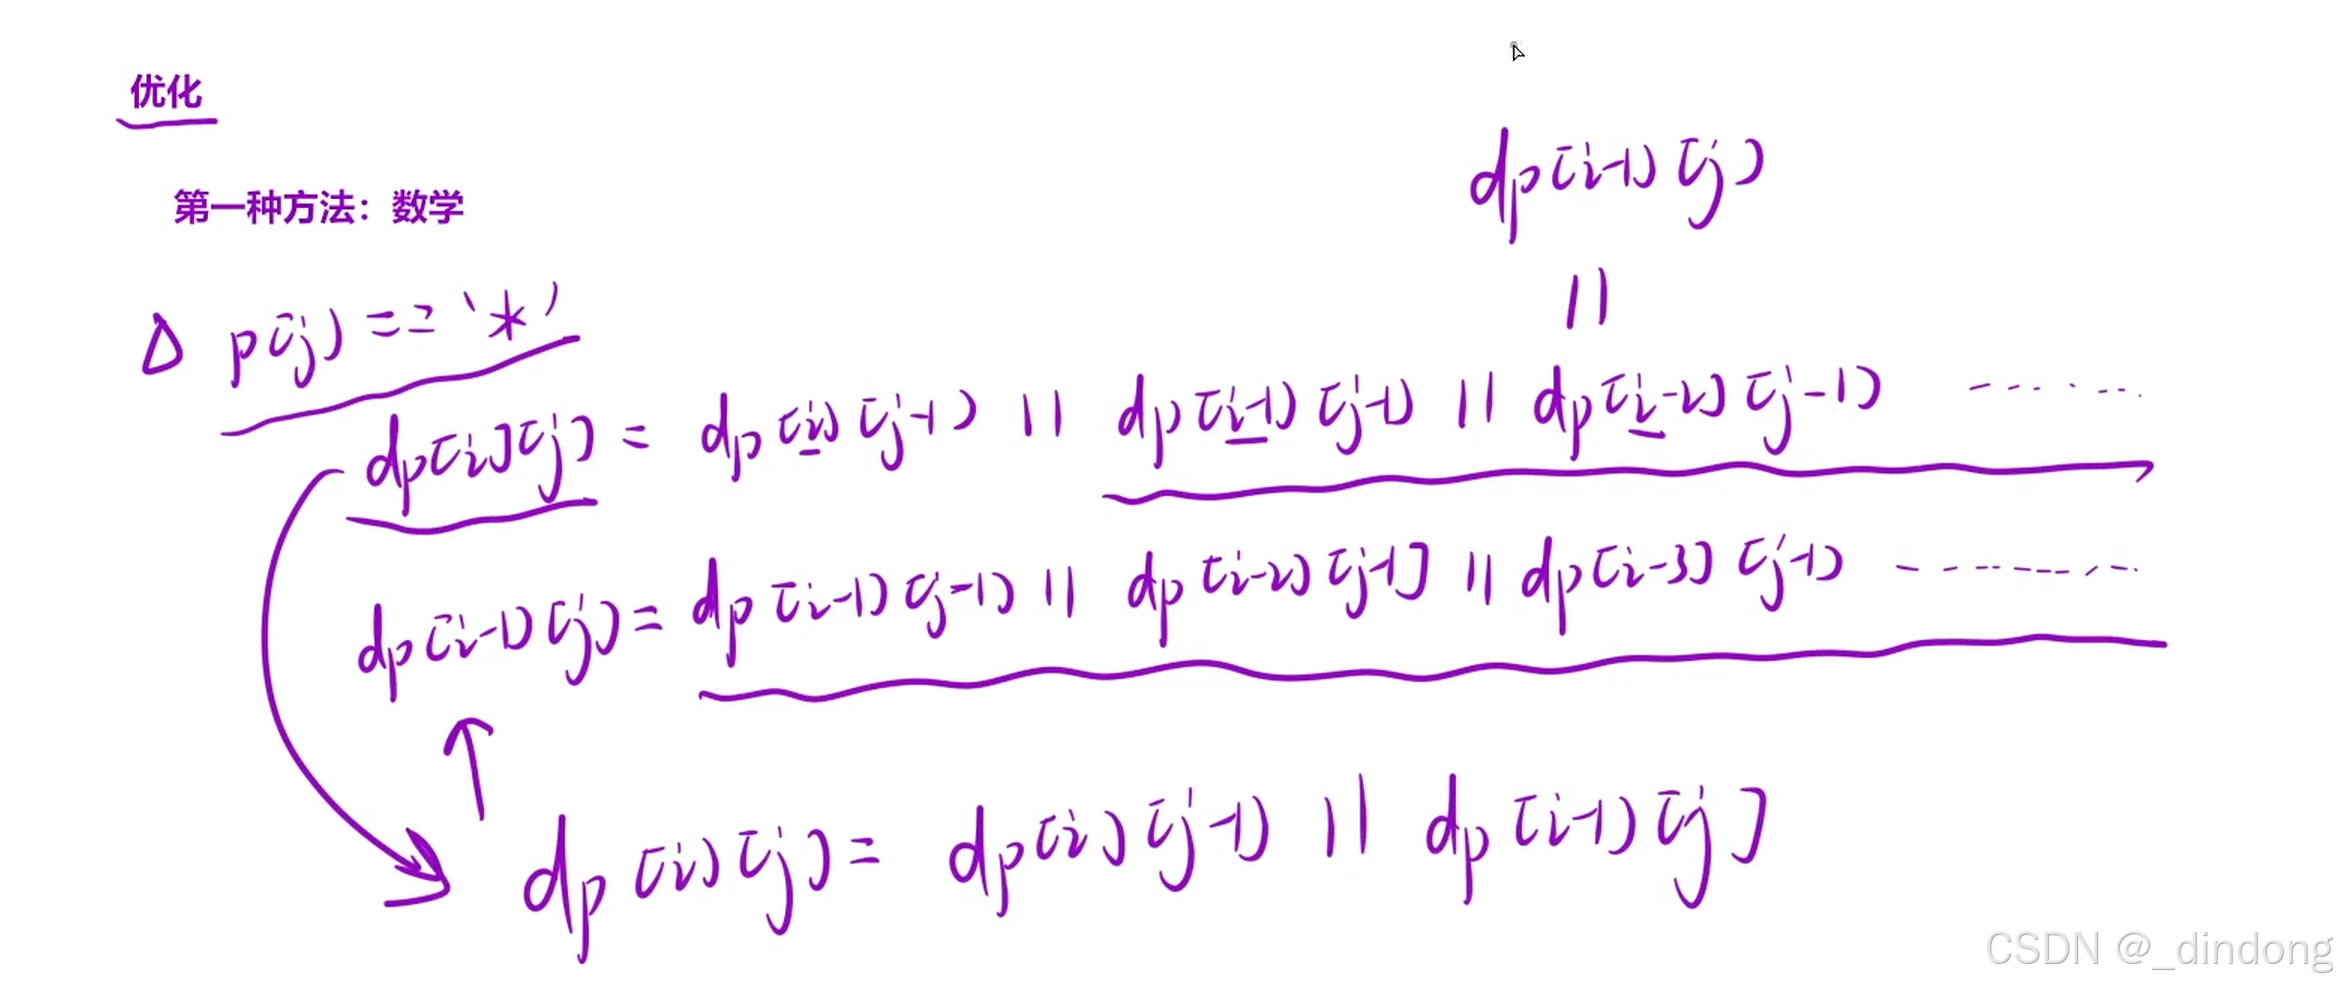 优化
第一种方法：数学
dp[i-1][j]
||
Δ p[j] == '*'
dp[i][j] = dp[i][j-1] || dp[i-1][j-1] || dp[i-2][j-1] ......
dp[i-1][j] = dp[i-1][j-1] || dp[i-2][j-1] || dp[i-3][j-1] ......
dp[i][j] = dp[i][j-1] || dp[i-1][j]
CSDN @_dindong